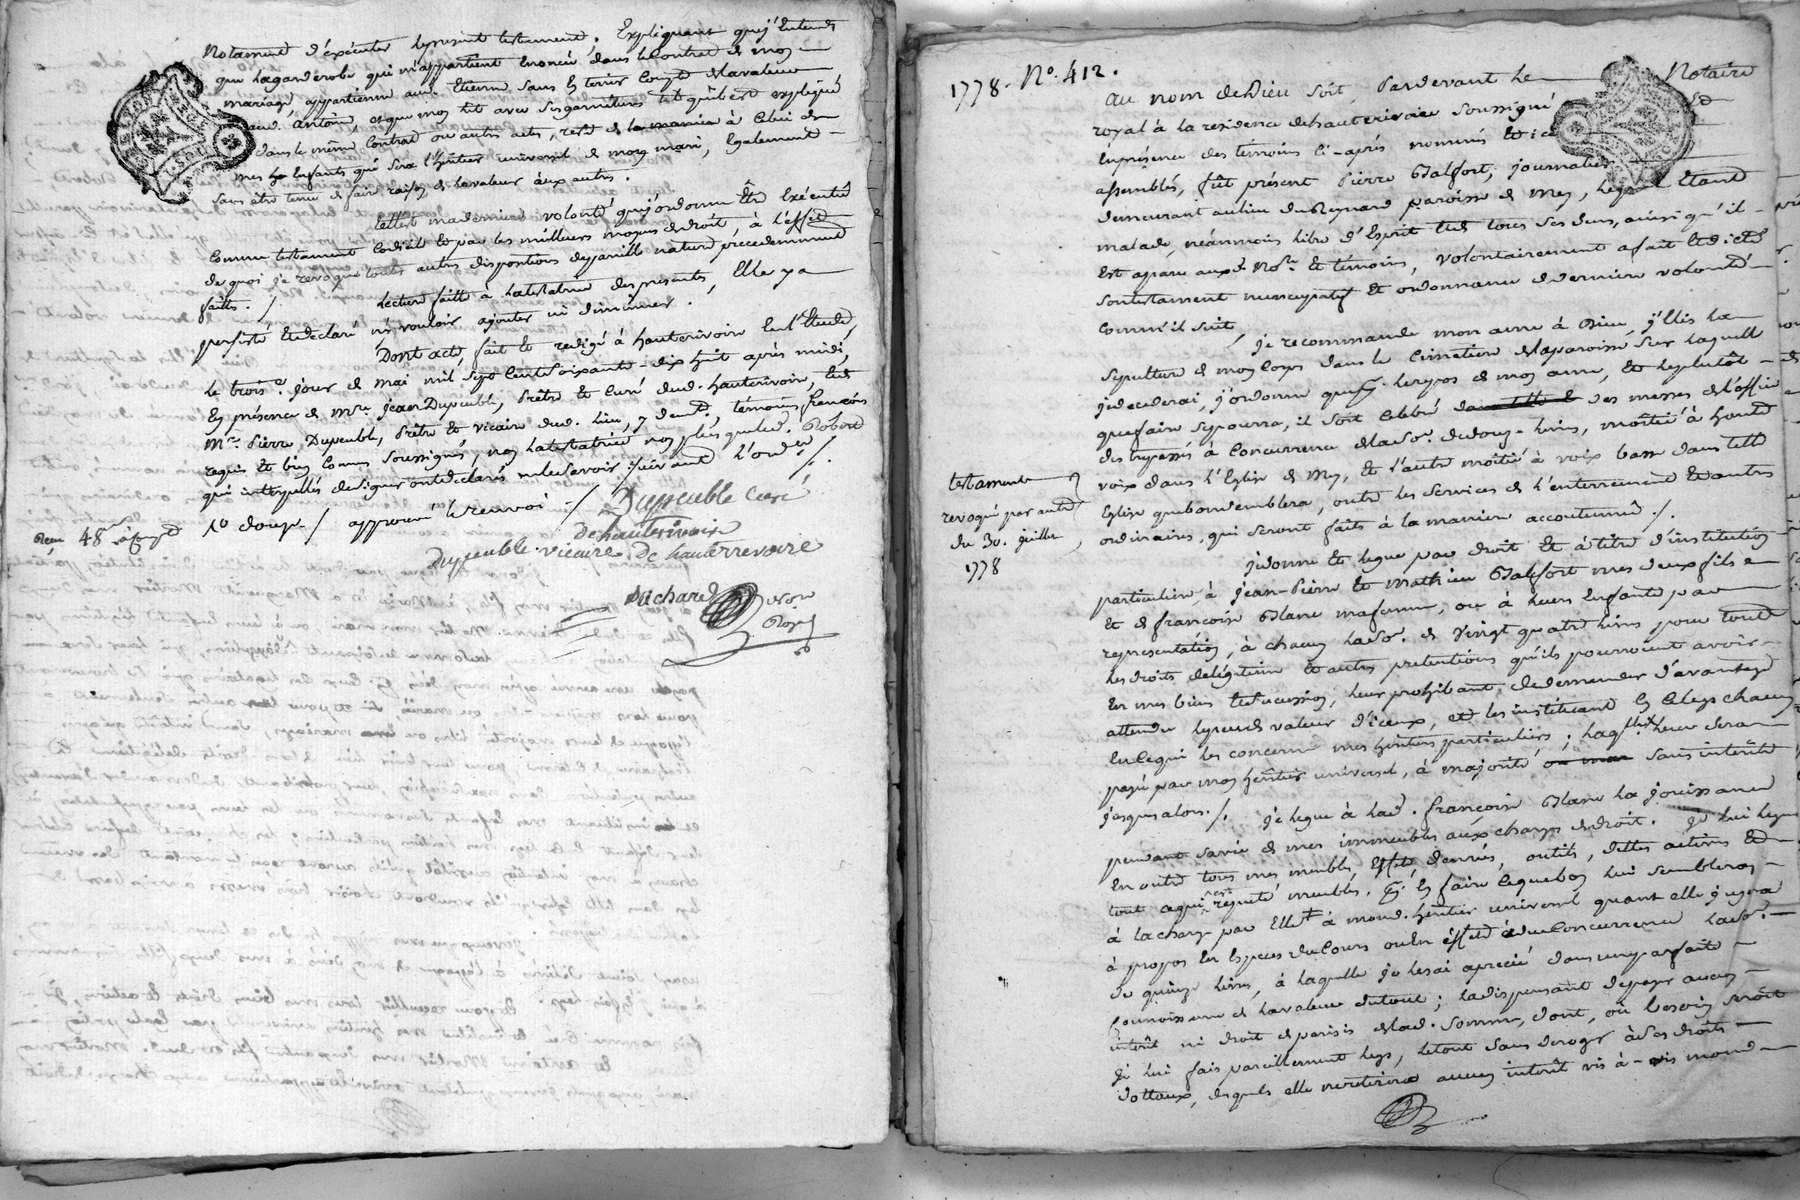 notamment d'exécuter le présent testament. Expliquant que j'entends
que la garderobe qui m'appartient enoncée dans le contrat de mon
mariage, appartienne aud. Etienne sans en tenir compte de la valeur
aud. Antoine, et que mon lit avec ses garnitures tel qu'il est expliqué
dans le même contrat ou autres actes, reste de la maniere à celui de
mes enfants qui sera l'héritier universel de mon mari, egalement
sans être tenu de faire raison de la valeur aux autres.
telle est ma derniere volonté que j'ordonne être exécutée
comme testament codicile et par les meilleurs moyens de droit, à l'effet
de quoi je revoque toutes autres dispositions de pareille nature precedemment
faites. /
lecture faitte à la testatrice des presents, Elle y a
persisté et declaré n'y vouloir ajouter ni diminuer.
Dont acte, fait et redigé à hauterivoire en l'Etude,
le trois.e jour de mai mil sept cent soixante-dix huit après midi,
En présence de M.re jean Dupeuble, Prêtre et Curé dud. hauterivoire, et de
M.re Pierre Dupeuble, Prêtre et vicaire dud. lieu, y demt., témoins françois
requis et bien connus soussignés, non la testatrice non plus que led. Robert
qui interpellés de signer ont declarés ne le savoir suivant l'ord.e /.
approuvé le renvoi /
Dupeuble curé
de hauterivoire
Dupeuble vicaire de hauterrevoire
Richard
Not.re
Royal
1778. N.o 412.
Au nom de Dieu soit, Pardevant le Notaire
royal à la residence de hauterivoire soussigné
En présence des temoins ci-après nommés
assemblés, fût présent Pierre Balfort, journalier
demeurant au lieu du Reynard paroisse de Mey, lequel Etant
malade, néanmoins libre d'Esprit et de tous ses sens, ainsi qu'il
Est aparu aux d. No.re et témoins, volontairement a fait et dicté
son testament nuncupatif et ordonnance de derniere volonté
comm'il suit,
je recommande mon ame à Dieu, j'Elis la
sepulture de mon corps dans le cimetiere de la paroisse sur laquelle
je decederai, j'ordonne que pr. le repos de mon ame, et le plutôt
que faire se pourra, il soit celebré des messes de l'office
des trepassés à concurrence de la so.e de douze livres, moitié à haute
voix dans l'Eglise de Mey, et l'autre moitié à voix basse dans telle
Eglise que bon semblera, outre les services de l'enterrement et autres
ordinaires, qui seront faits à la maniere accoutumée /.
testament
revoqué par autre
du 30. juillet
1778
je donne et legue par droit et à titre d'institution
particuliere, à jean-Pierre et mathieu Balfort mes deux fils
et de françoise Blanc ma femme, ou à leurs Enfants par
representation, à chacun la so.e de vingt quatre livres pour tous
les droits de légitime et autres pretentions qu'ils pourroient avoir
En mes biens et succession, leur prohibant de demander d'avantage
attendu le peu de valeur d'iceux, et les instituant En ce legs chacun
En ce qui les concerne mes héritiers particuliers; laquelle leur sera
payé par mon héritier universel, à majorité sans interêts
jusqu'alors. /.
je legue à lad. françoise Blanc la jouissance
pendant sa vie de mes immeubles aux charges de droit. je lui legue
En outre tous mes meubles, Effets, denrées, outils, dettes actives et
tout ce qui est reputé meubles, pr. En faire ce que bon lui semblera
à la charge par Elle à mond. héritier universel quant elle jugera
à propos En Especes du cours ou en effets de concurrence la so.e
de quinze livres, à laquelle je les ai aprecié dans une parfaite
connoissance de la valeur du tout; la dispensant de payer aucun
interêt ni droit de parisis de lad. somme, dont, ou besoin seroit
je lui fais pareillement legs, le tout sans deroger à ses droits
dottaux, desquels elle ne retirera aucun interêt vis à-vis mond